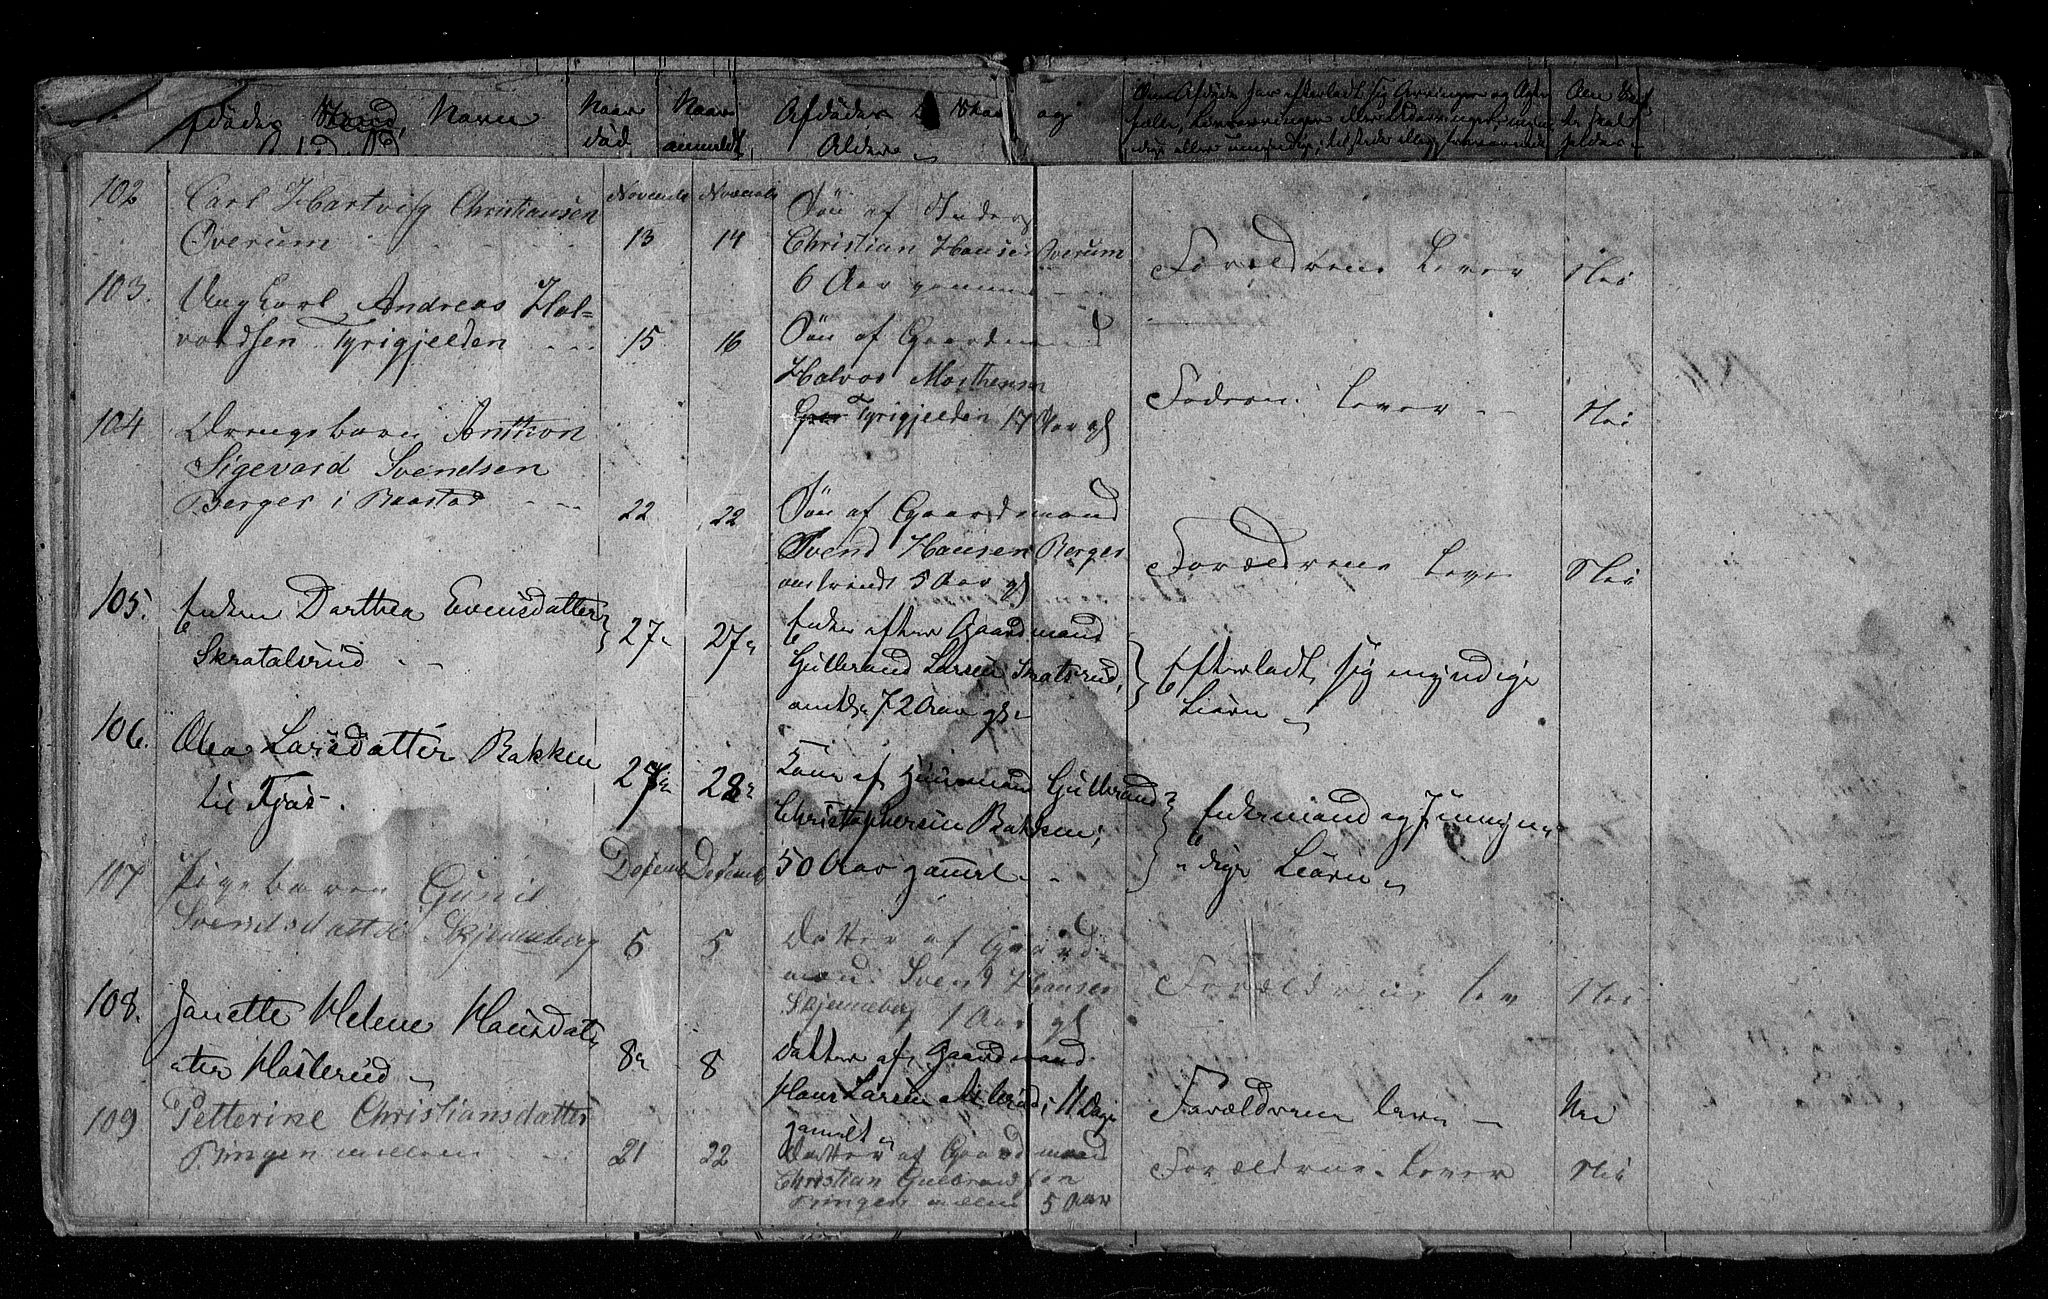 Afdødes Stand, Navn
Naar død
Naar anmeldt
Afdødes Stand og Alder
Om Afdøde har efterladt sig Arvinger og
102
Carl Hartvig Christiansen
Overum
November November
13 14
Søn af Inders
Christian Hansen Overum
6 Aar gammel
Forældrene Lever
Nei
103.
Ungkarl Andreas Hal=
vordsen Tyrigjelden
15 16
Søn af Gaardmand
Halvor Morthensen
Tyrigjelden 17 Aar gl
Faderen Lever
Nei
104
Drengebarn Anthon
Sigevard Svendsen
Berger i Baastad
22 22
Søn af Gaardmand
Svend Hansen Berger
5 Aar gl
Forældrene Lever
Nei
105.
Enken Dorthea Evensdatter
Skratalsrud
27 27
Enke efter Gaardmand
Gulbrand Larsen
72 Aar gl
Efterladt sig myndige
Børn
106.
Olea Larsdatter Bakken
27 28
Kone af Huusmand Gulbrand
Christophersen Bakken,
50 Aar gammel
Enkemand og umyn=
dige Børn
107
Pigebarn Gunil
Svendsdatter Skjenneberg
Desemb Desemb
5 5
Datter af Gaard
mand Svend Hansen
Skjenneberg 1 Aar gl
Forældrene Lev
Nei
108.
Janette Helene Hansdat
ter Haslerud
8 8
Datter af Gaardmand
Hans Larsen Haslerud, 11 Dage
gammelt
Forældrene lever
Nei
109
Petterine Christiansdatter
Ringen mellem
21 22
Datter af Gaardmand
Christian Gulbrandsen
Ringen mellem 5 Aar
Forældrene Lever
Nei